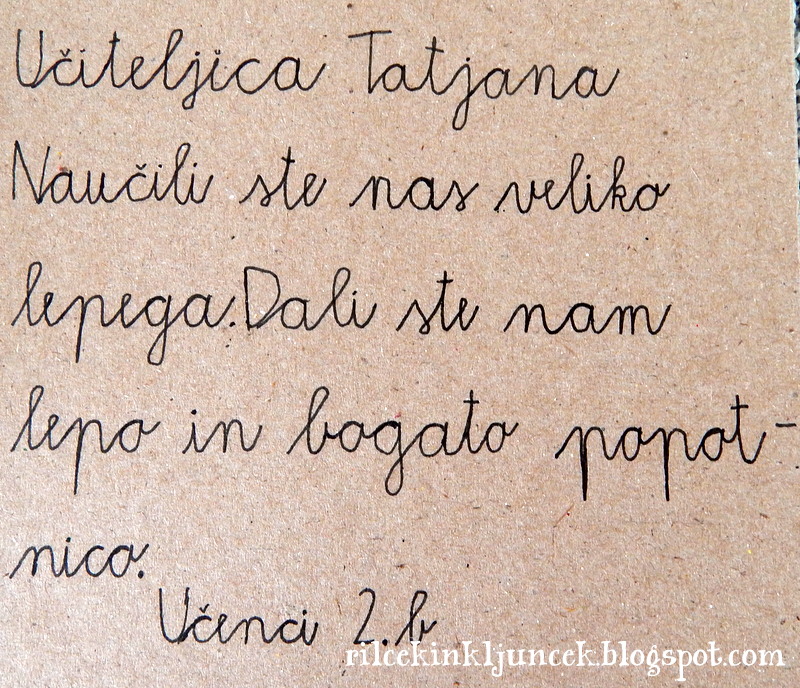 Učiteljica Tatjana
Naučili ste nas veliko
lepega. Dali ste nam
lepo in bogato popot-
nico.
Učenci 2.b
rilcekinkljuncek.blogspot.com